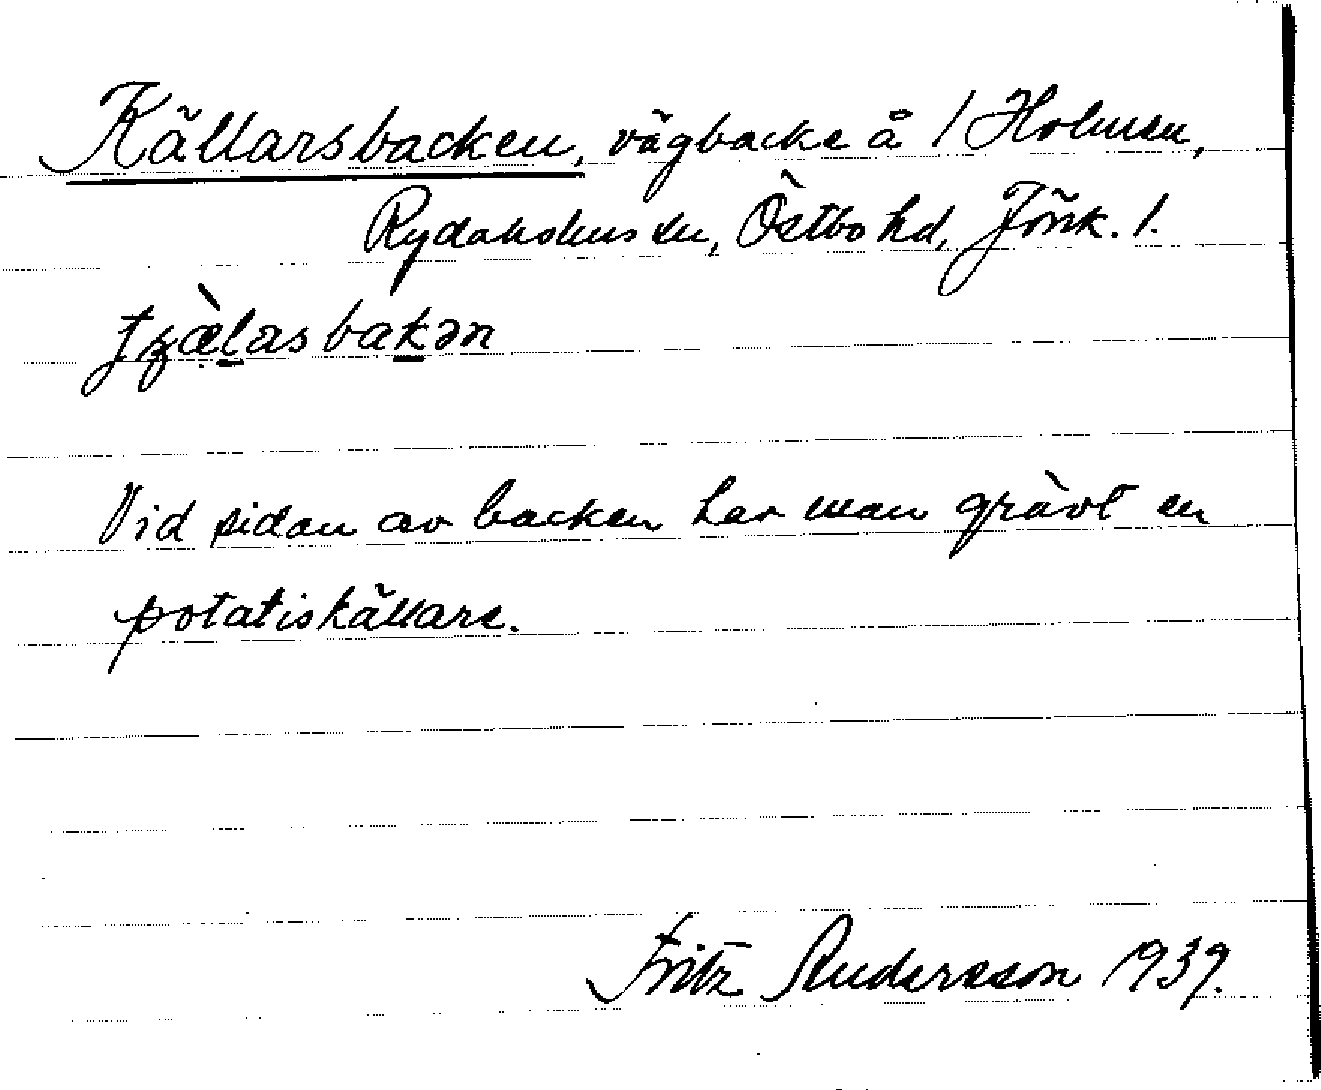 Källarsbacken, vägbacke å 1 Holmen,
Rydaholms sn, Östbo hd, Jönk. l.
Vid sidan av backen har man grävt en
potatiskällare.
Fritz Andersson 1939.